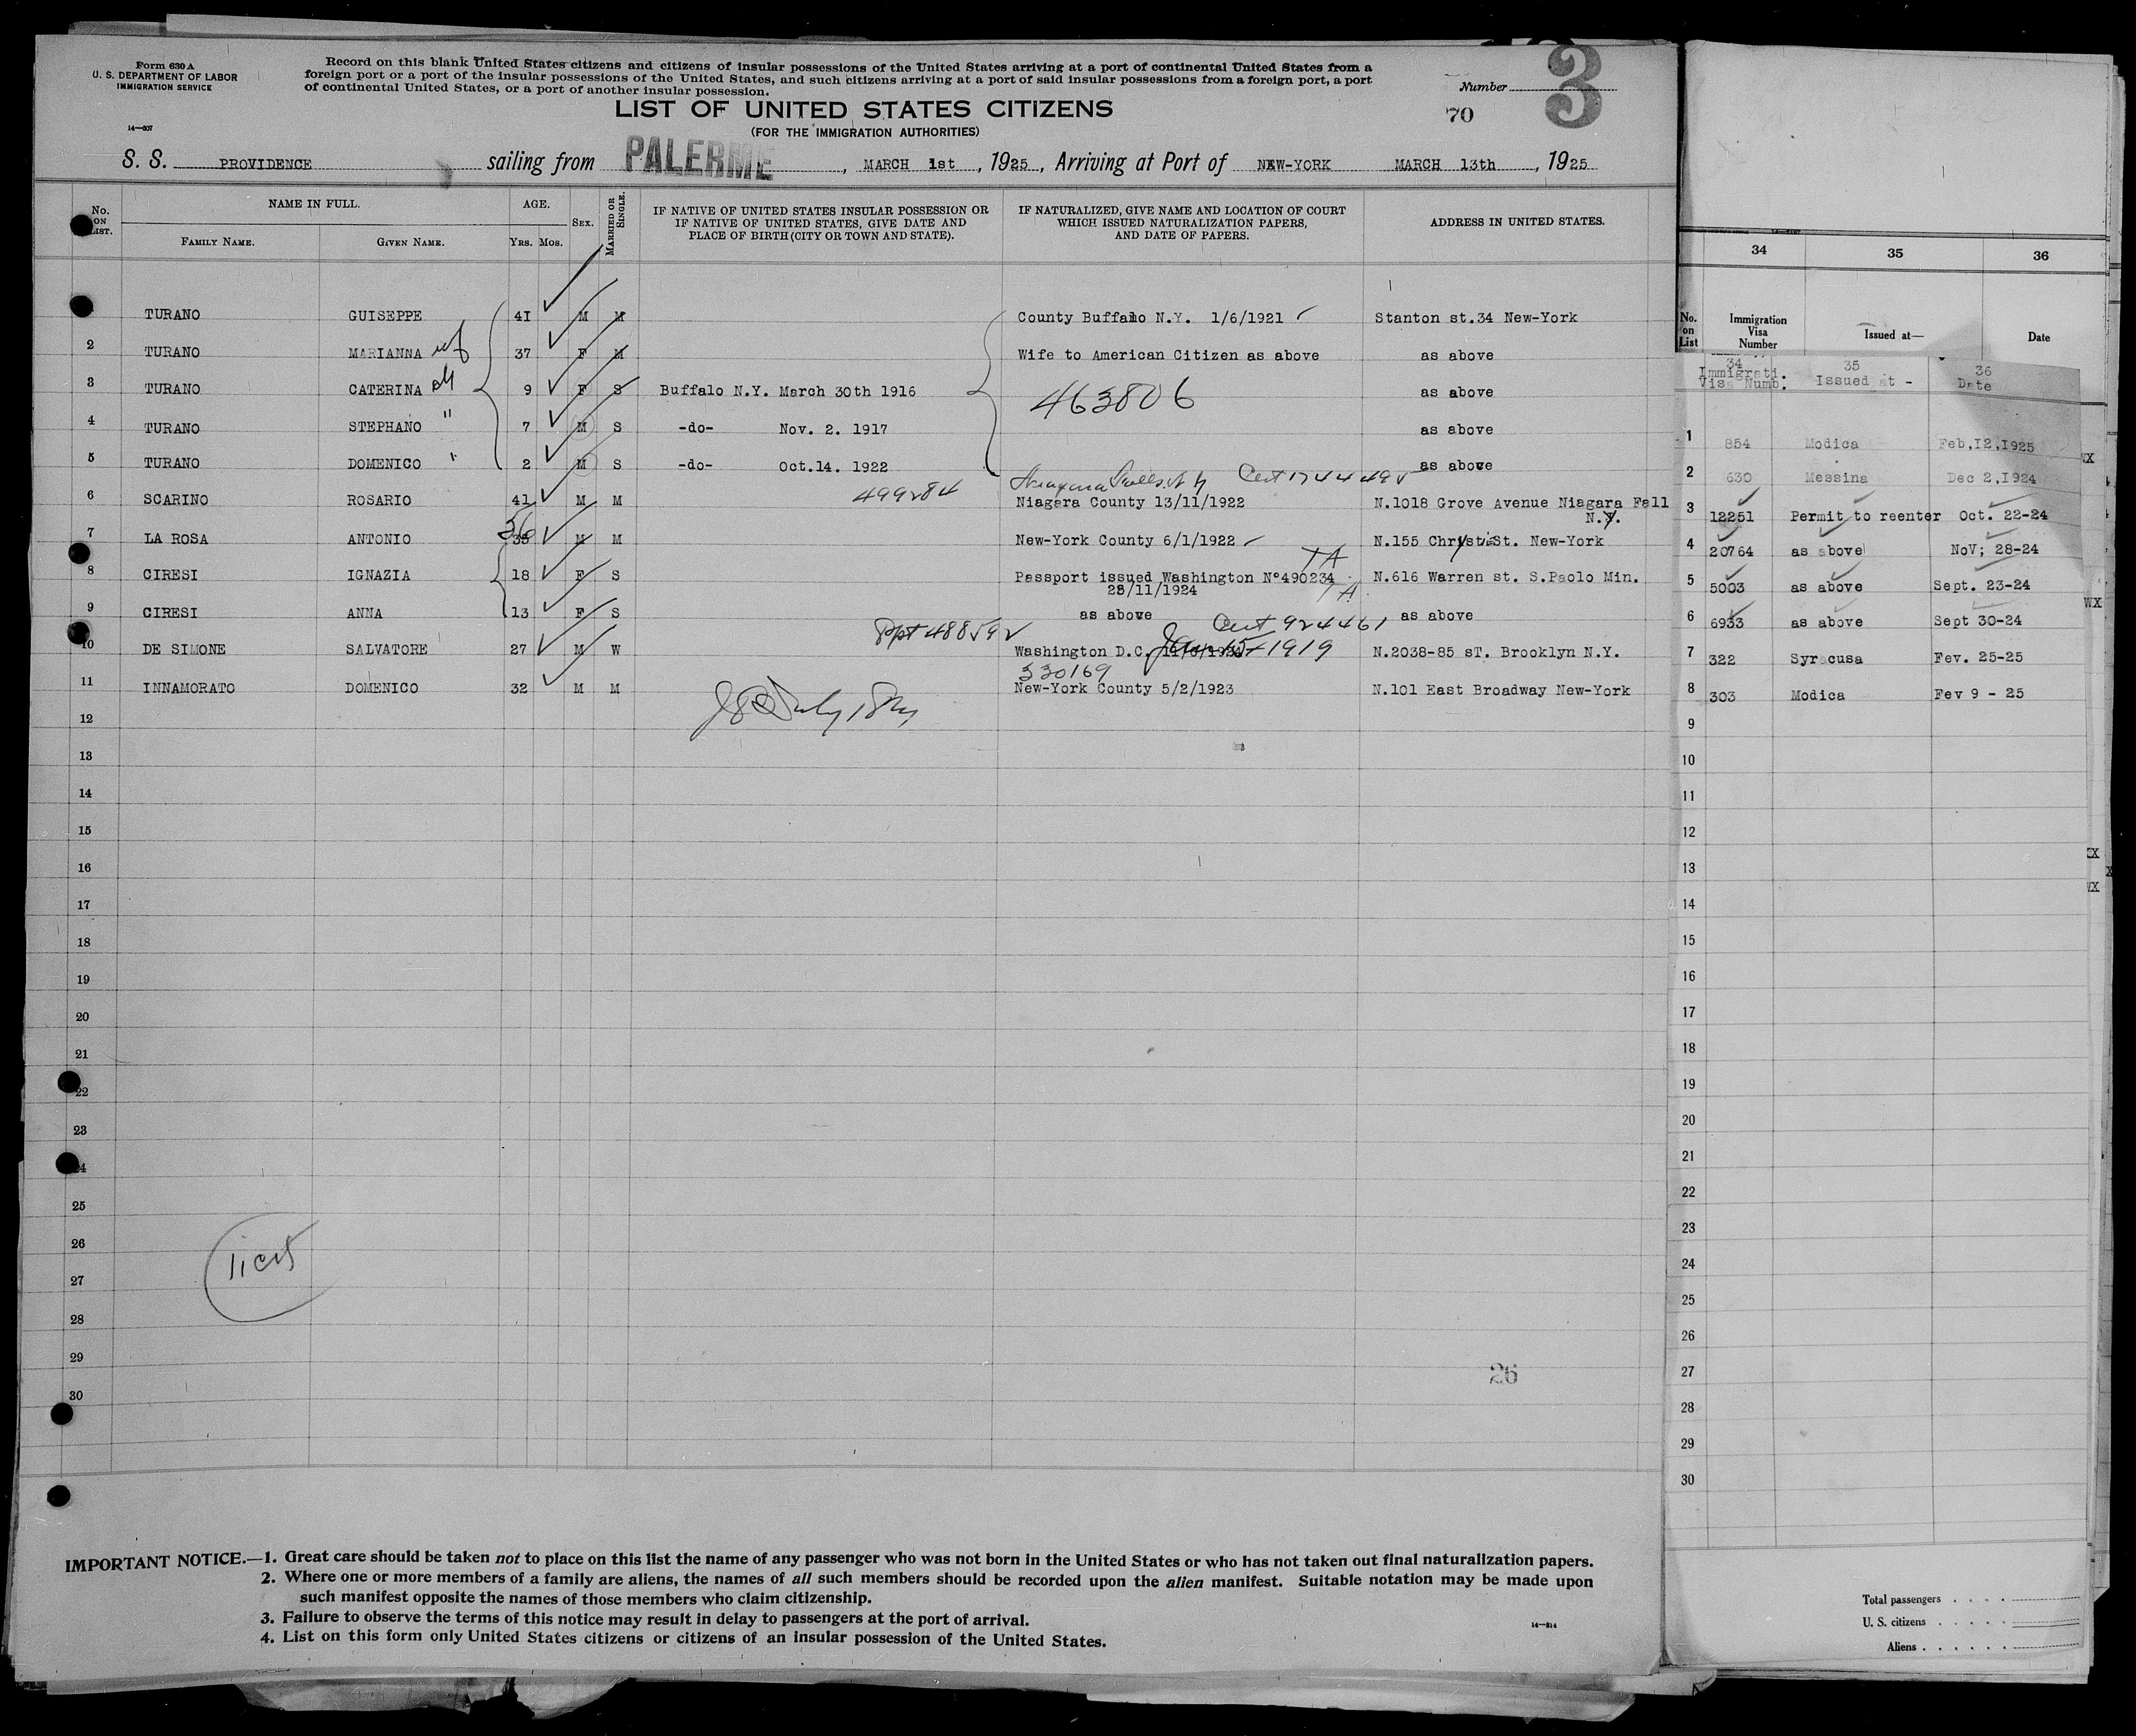 Form 630 A
U. S. DEPARTMENT OF LABOR
IMMIGRATION SERVICE
14—307
Record on this blank United States citizens and citizens of insular possessions of the United States arriving at a port of continental United States from a
foreign port or a port of the insular possessions of the United States, and such citizens arriving at a port of said insular possessions from a foreign port, a port
of continental United States, or a port of another insular possession.
LIST OF UNITED STATES CITIZENS
(FOR THE IMMIGRATION AUTHORITIES)
Number
3
70
S. S. PROVIDENCE sailing from PALERME, MARCH 1st, 1925, Arriving at Port of NEW-YORK MARCH 13th, 1925
No. ON LIST.
NAME IN FULL.
FAMILY NAME. GIVEN NAME.
AGE.
YRS. MOS.
SEX.
MARRIED OR SINGLE.
IF NATIVE OF UNITED STATES INSULAR POSSESSION OR
IF NATIVE OF UNITED STATES, GIVE DATE AND
PLACE OF BIRTH (CITY OR TOWN AND STATE).
IF NATURALIZED, GIVE NAME AND LOCATION OF COURT
WHICH ISSUED NATURALIZATION PAPERS,
AND DATE OF PAPERS.
ADDRESS IN UNITED STATES.
TURANO GUISEPPE 41 M M County Buffalo N.Y. 1/6/1921 Stanton st.34 New-York
2 TURANO MARIANNA wf 37 F M Wife to American Citizen as above as above
3 TURANO CATERINA 9 F S Buffalo N.Y. March 30th 1916 463806 as above
4 TURANO STEPHANO " 7 M S -do- Nov. 2. 1917 as above
5 TURANO DOMENICO " 2 M S -do- Oct.14. 1922 as above
Niagara Falls N Y Cert 1744495
499284
6 SCARINO ROSARIO 41 M M Niagara County 13/11/1922 N.1018 Grove Avenue Niagara Fall
N.Y.
36
7 LA ROSA ANTONIO 35 M M New-York County 6/1/1922 N.155 Chrystie St. New-York
TA
8 CIRESI IGNAZIA 18 F S Passport issued Washington N°490234 N.616 Warren st. S.Paolo Min.
25/11/1924 TA
9 CIRESI ANNA 13 F S as above as above
Ppt 488592 Cert 924461
10 DE SIMONE SALVATORE 27 M W Washington D.C. Jan 15-1919 N.2038-85 sT. Brooklyn N.Y.
330169
11 INNAMORATO DOMENICO 32 M M New-York County 5/2/1923 N.101 East Broadway New-York
12
13
14
15
16
17
18
19
20
21
22
23
24
25
26
27
28
29
30
26
IMPORTANT NOTICE.—1. Great care should be taken not to place on this list the name of any passenger who was not born in the United States or who has not taken out final naturalization papers.
2. Where one or more members of a family are aliens, the names of all such members should be recorded upon the alien manifest. Suitable notation may be made upon
such manifest opposite the names of those members who claim citizenship.
3. Failure to observe the terms of this notice may result in delay to passengers at the port of arrival.
4. List on this form only United States citizens or citizens of an insular possession of the United States.
14—314
34 35 36
No. on List
Immigration Visa Number
Issued at—
Date
34 35 36
Immigrati. Visa Numb. Issued at - Date
1 854 Modica Feb,12,1925
2 630 Messina Dec 2,1924
3 12251 Permit to reenter Oct. 22-24
4 20764 as above NoV; 28-24
5 5003 as above Sept. 23-24
6 6933 as above Sept 30-24
7 322 Syracusa Fev. 25-25
8 303 Modica Fev 9 - 25
9
10
11
12
13
14
15
16
17
18
19
20
21
22
23
24
25
26
27
28
29
30
Total passengers
U. S. citizens
Aliens